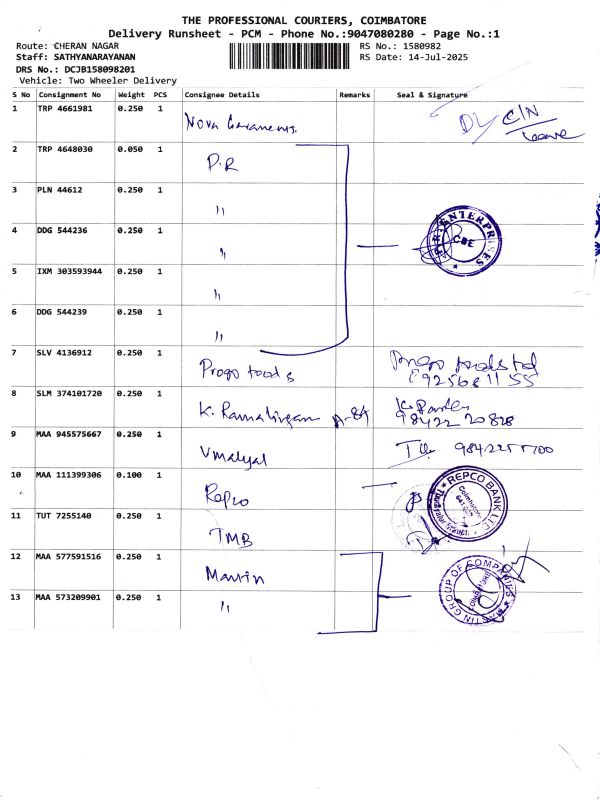 THE PROFESSIONAL COURIERS, COIMBATORE
Delivery Runsheet - PCM - Phone No.:9047080280 - Page No.:1
Route: CHERAN NAGAR RS No.: 1580982
Staff: SATHYANARAYANAN RS Date: 14-Jul-2025
DRS No.: DCJB158098201
Vehicle: Two Wheeler Delivery
S No Consignment No Weight PCS Consignee Details Remarks Seal & Signature
1 TRP 4661981 0.250 1 Nova DL C/N
2 TRP 4648030 0.050 1 P.R
3 PLN 44612 0.250 1 "
4 DDG 544236 0.250 1 " ENTERPRISES CBE
5 IXM 303593944 0.250 1 "
6 DDG 544239 0.250 1 "
7 SLV 4136912 0.250 1 Progo foods
8 SLM 374101720 0.250 1 K. Ramalingam 98422 20828
9 MAA 945575667 0.250 1 Vmalyal
10 MAA 111399306 0.100 1 Repco REPCO BANK LTD Coimbatore
11 TUT 7255140 0.250 1 TMB
12 MAA 577591516 0.250 1 Martin MARTIN GROUP OF COMPANIES COIMBATORE
13 MAA 573209901 0.250 1 "